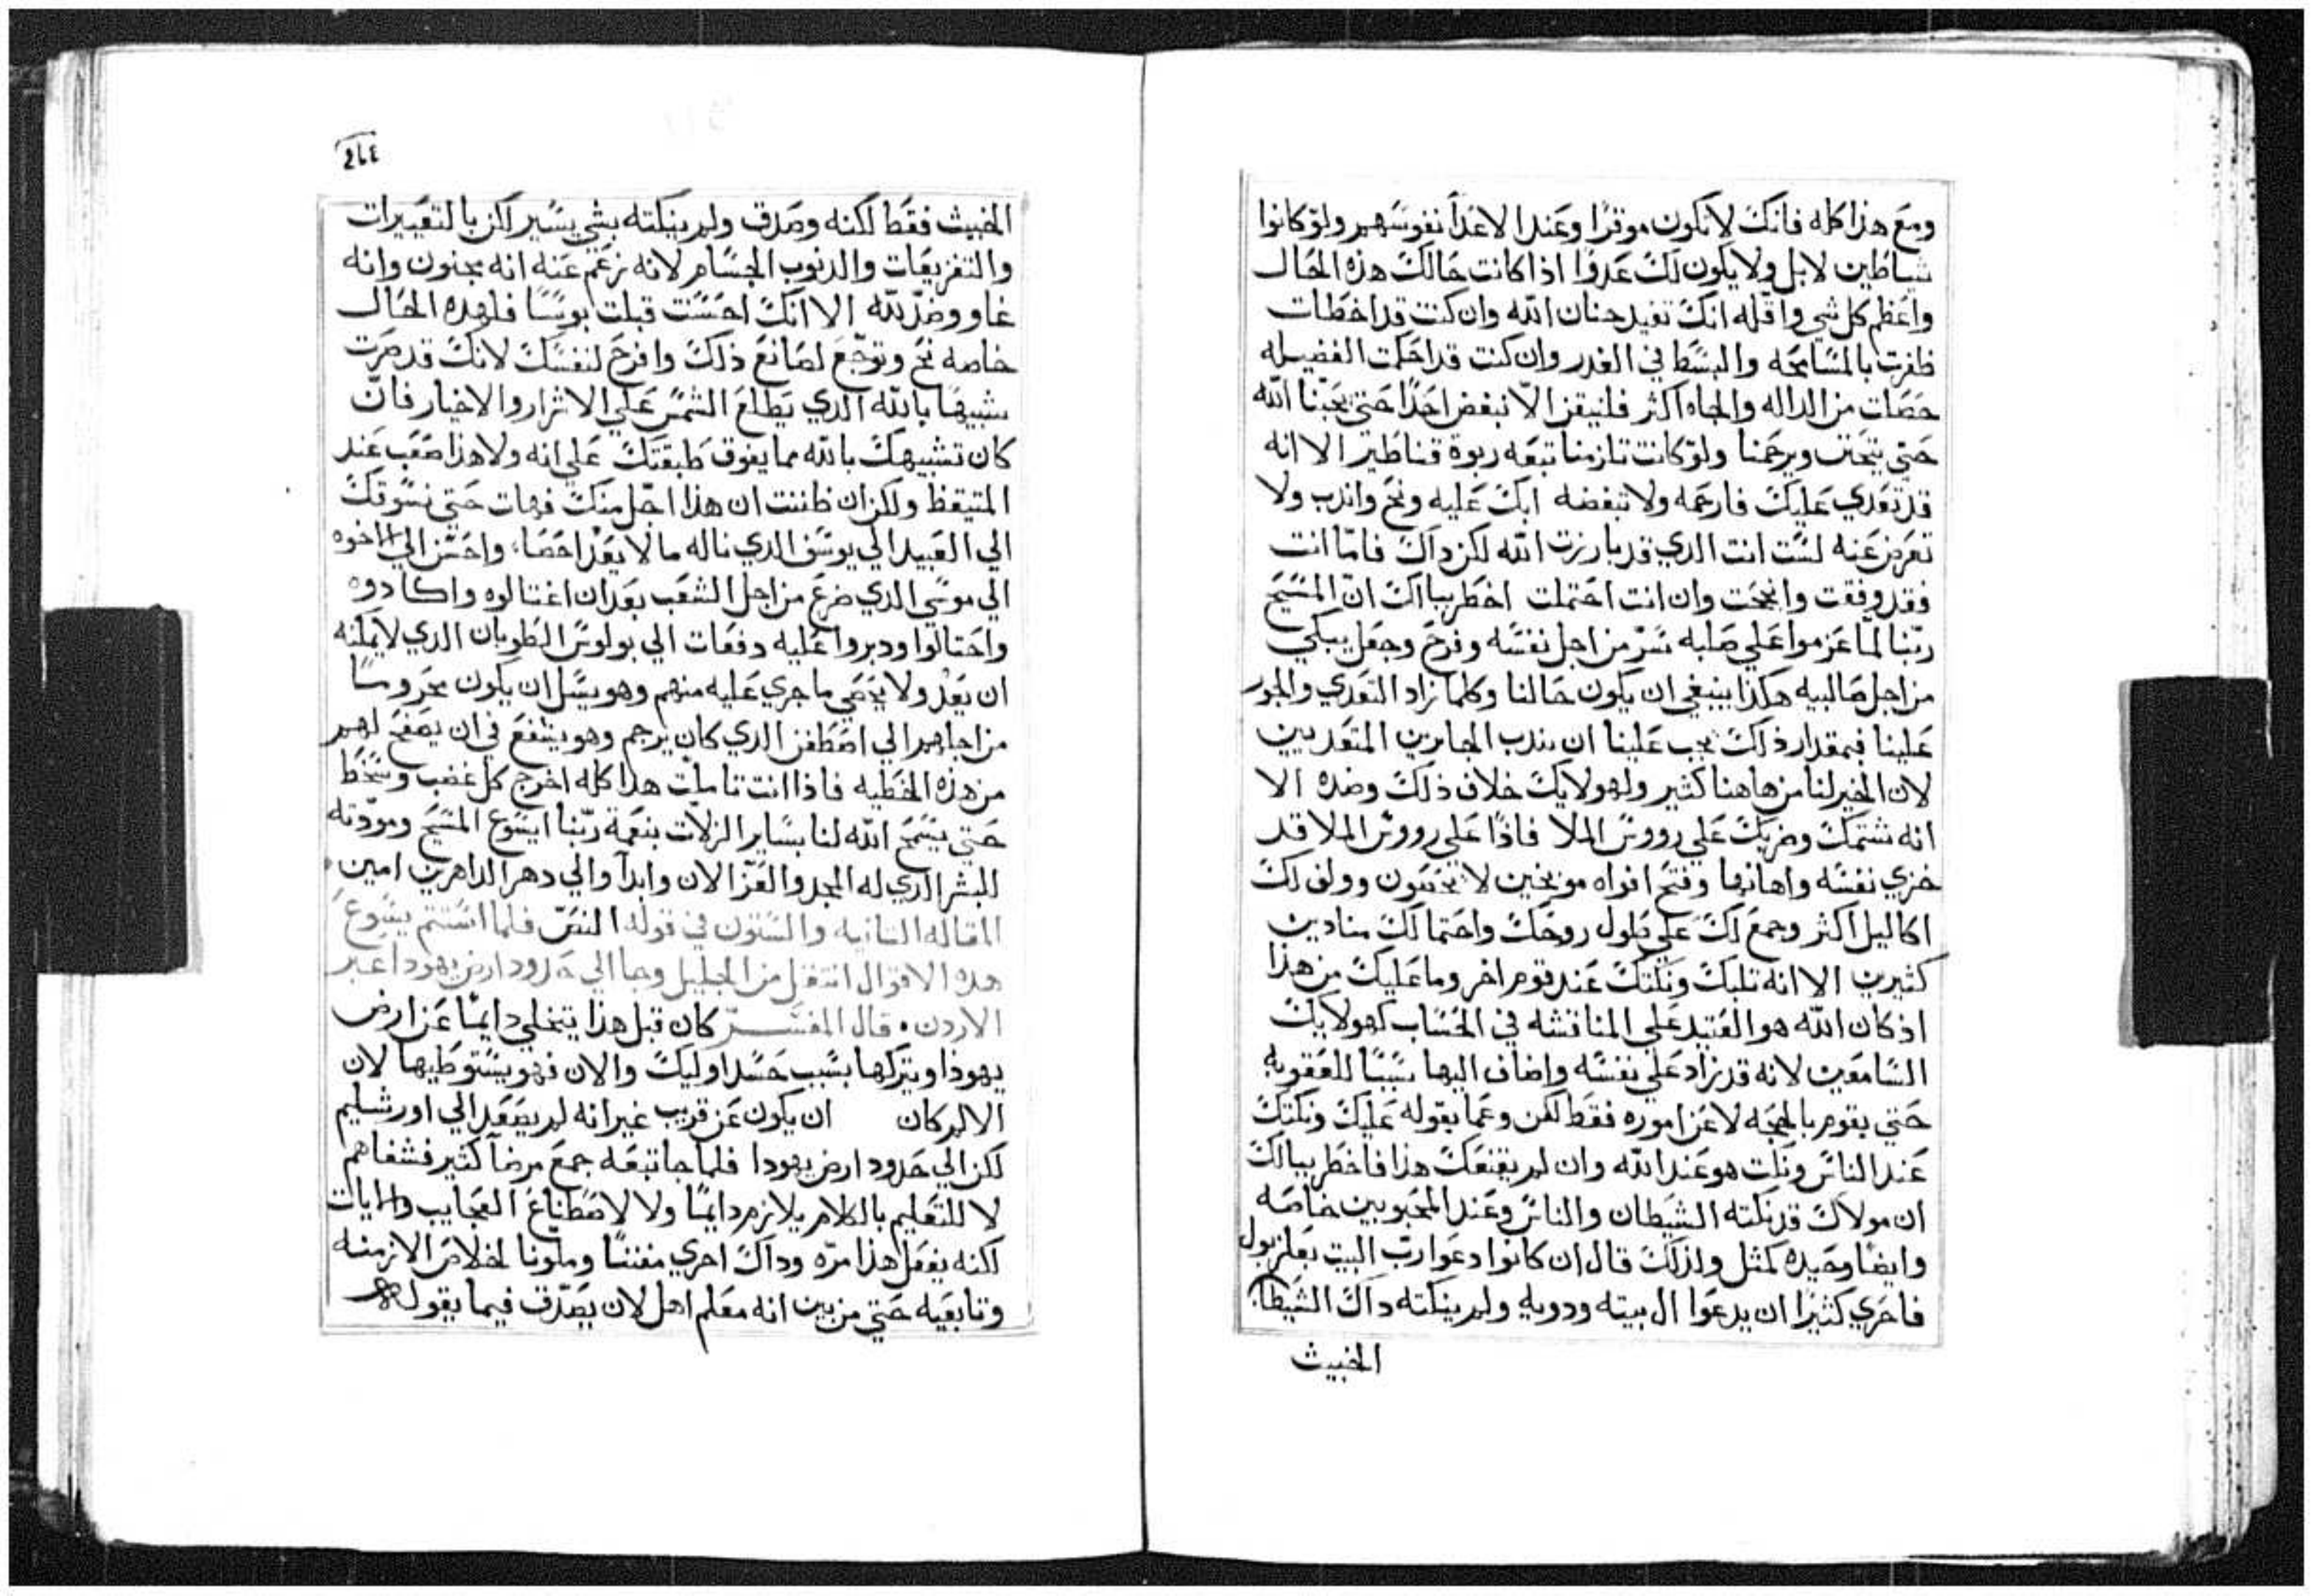 ومع هذا كله فانك لا تكون موقرًا وعند الاعدآ نفوسهم ولو كانوا
شياطين لا بل ولا يكون لك عدوًا اذا كانت حالك هذه الحال
واعظم كل شي واقله انك تفيد حنان الله وان كنت قد اخطات
ظفرت بالمسامحه والبسط في الغدر وان كنت قد احكمت الفضيله
حصلت من الداله والجاه اكثر فلنيقن الّا نبغض احدًا حتي يحبّنا الله
حتي يتحنن ويرحمنا ولو كانت تلزمنا تبعه ربوة قناطير الا انه
قد تعدي عليك فارحمه ولا تبغضه ابك عليه ونح واندب ولا
تعرض عنه لست انت الدي قد بارزت الله لكن داك فامّا انت
فقد وفقت وانجحت وان انت احتملت اخطر ببالك انّ المسيح
ربّنا لمّا عزموا علي صلبه سرّ من اجل نفسه وفرح وجعل يبكي
من اجل صالبيه هكذا ينبغي ان يكون حالنا وكلما زاد التعدي والجور
علينا فبمقدار ذلك يجب علينا ان نندب الجايرين المتعديين
لان الخير لنا من هاهنا كثير ولهولايك خلاف ذلك وضده الا
انه شتمك وضربك علي رووس الملا فاذًا علي رووس الملا قد
خزي نفسه واهانها وفتح افواه موبخين لا يحصون وولف لك
اكاليل اكثر وجمع لك علي طول روحك واحتمالك منادين
كثيرين الا انه ثلبك ونكتك عند قوم اخر وما عليك من هذا
اذ كان الله هو العتيد علي المناقشه في الحساب لهولايك
السامعين لانه قد زاد علي نفسه واضاف اليها سببًا للعقوبه
حتي يقوم بالحجه لا عن اموره فقط لكن وعما يقوله عليك ونكتك
عند الناس ونكت هو عند الله وان لم يقنعك هذا فاخطر ببالك
ان مولاك قد نكته الشيطان والناس وعند المحبوبين خاصه
وايضًا وحيده كمثل ولذلك قال ان كانوا دعوا ربّ البيت بعلزبول
فاحري كثيرًا ان يدعوا ال بيته ودويه ولم ينكته داك الشيطان
الخبيث
٢٤٤
الخبيث فقط لكنه وصدق ولم ينكته بشي يسير لكن بالتعييرات
والتقريعات والدنوب الجسام لانه زعم عنه انه مجنون وانه
غاو وضدّ لله الا انك احسنت قبلت بوسًا فلهده الحال
خاصه نح وتوجّع لصانع ذلك وافرح لنفسك لانك قد صرت
شبيهًا بالله الدي يطلع الشمس علي الاشرار والاخيار فانّ
كان تشبيهك بالله مما يفوق طبقتك علي انه ولا هذا صعب عند
المتيقظ ولكن ان ظننت ان هذا اجّل منك فهات حتي نسوقك
الي العبيد الي يوسف الدي ناله ما لا يعد احصاء واحسن الي الاخوه
الي موسي الدي ضرع من اجل الشعب بعد ان اغتالوه واكادوه
واحتالوا ودبروا عليه دفعات الي بولوس الطوبان الدي لا يمكنه
ان يعد ولا يحصي ما جري عليه منهم وهو يسل ان يكون محروسًا
من اجلهم الي اصطفن الدي كان يرجم وهو يشفع في ان يصفح لهم
من هذه الخطيه فاذا انت تاملت هدا كله اخرج كل غضب وسخط
حتي يسمح الله لنا بساير الزلاّت بنعمة ربّنا ايسوع المسيح ومودّته
للبشر الدي له المجد والعزّ الان وابدآ والي دهر الداهرين امين
المقاله التانيه والستون في قوله النصّ فلما استتم يسوع
هده الاقوال انتقل من الجليل وجا الي حدود ارض يهودا عبر
الاردن . قال المفسّر كان قبل هذا يتخلي دايمًا عن ارض
يهوذا ويتركها بسبب حسد اوليك والان فهو يستوطيها لان
الالم كان ان يكون عن قريب غير انه لم يصعد الي اورشليم
لكن الي حدود ارض يهودا فلما جا تبعه جمع مرضآ كثير فشفاهم
لا للتعليم بالكلام يلازم دايمًا ولا لاصطناع العجايب والايات
لكنه يفعل هذا مرّه وداك اخري مفننًا وملّونا لخلاص الازمنه
وتابعيه حتي من بين انه معلم اهل لان يصدّق فيما يقول